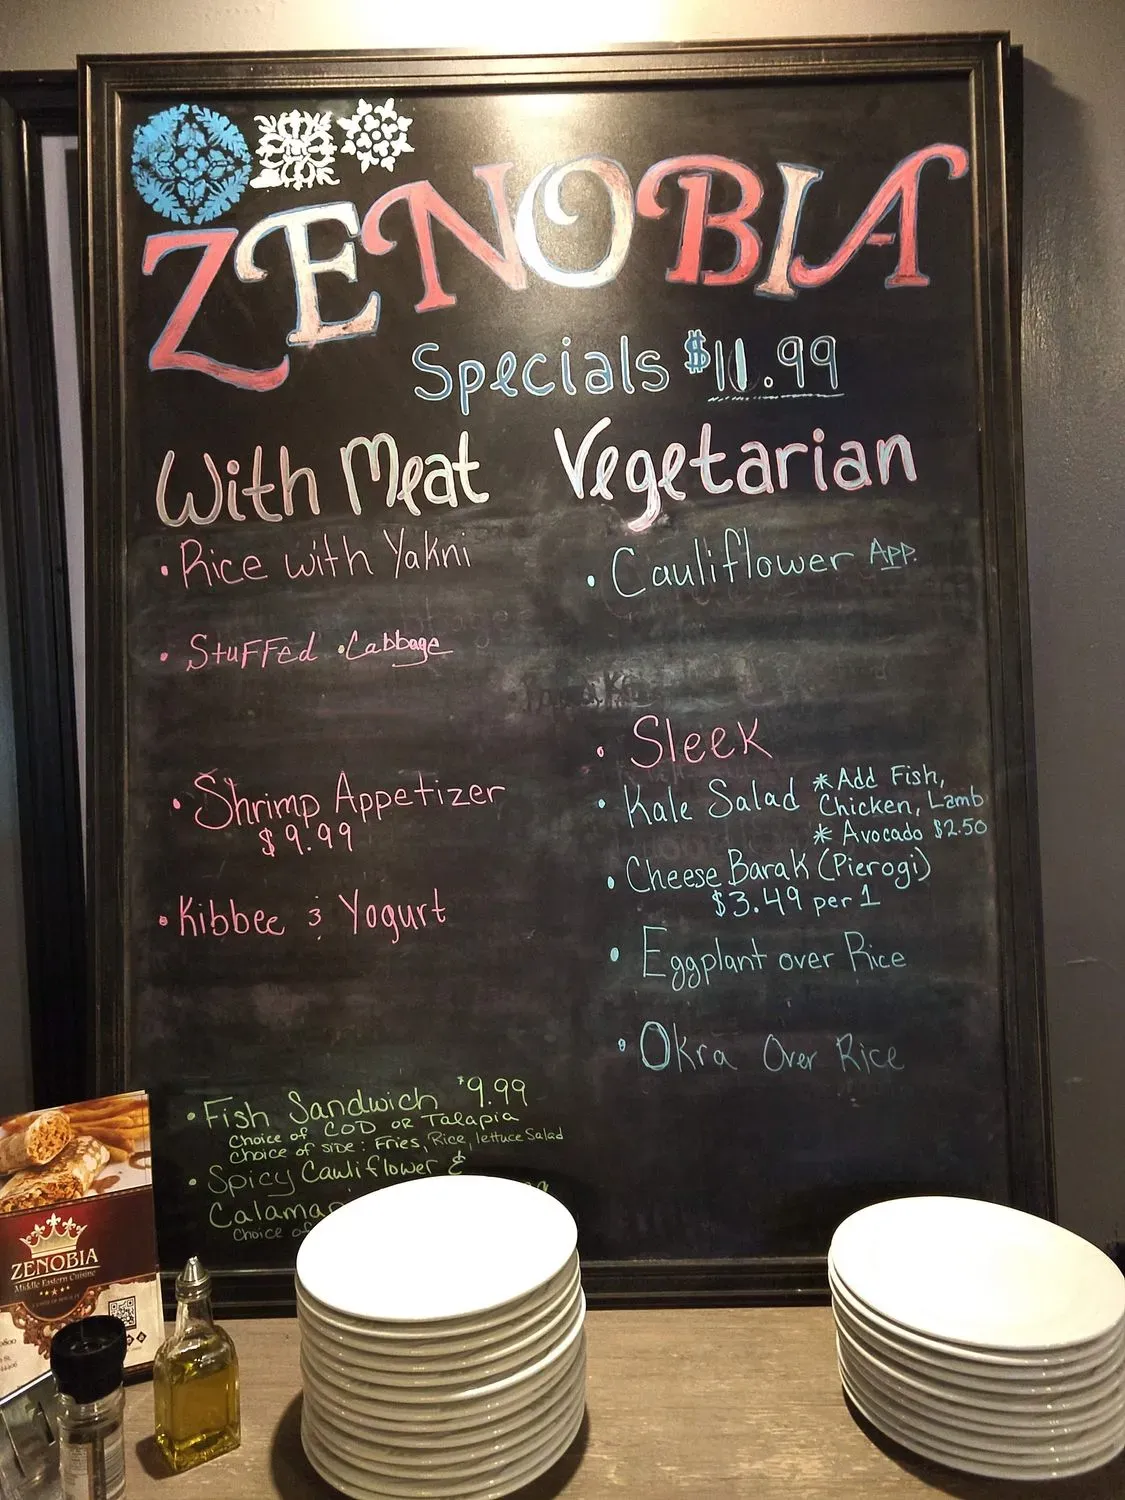 ZENOBIA
Specials $11.99
With Meat
• Rice with Yakni
• Stuffed Cabbage
• Shrimp Appetizer
$9.99
• Kibbee & Yogurt
Vegetarian
• Cauliflower App.
• Sleek
• Kale Salad * Add Fish,
Chicken, Lamb
* Avocado $2.50
• Cheese Barak (Pierogi)
$3.49 per 1
• Eggplant over Rice
• Okra Over Rice
• Fish Sandwich $9.99
Choice of COD OR Talapia
Choice of SIDE: Fries, Rice, lettuce Salad
• Spicy Cauliflower &
Calamar
Choice of
ZENOBIA
Middle Eastern Cuisine